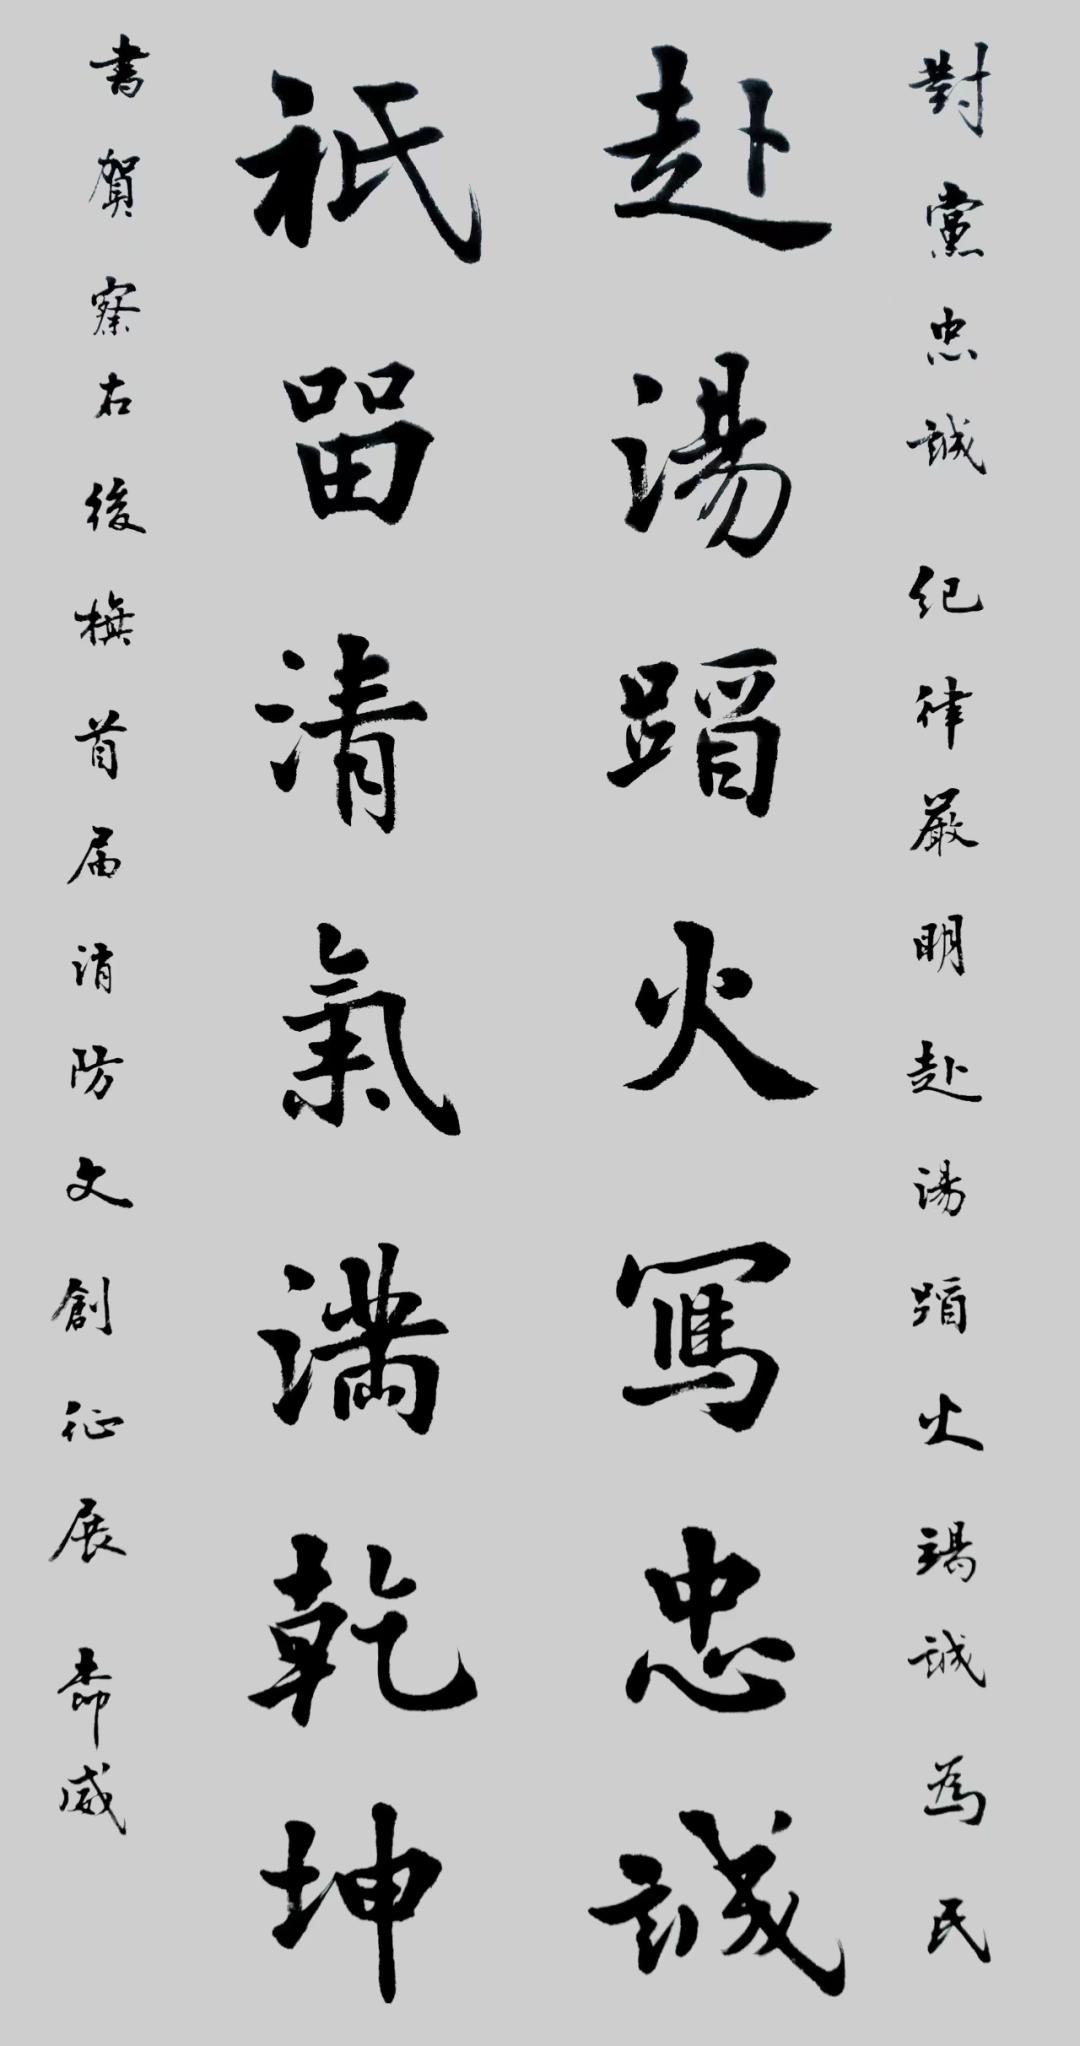 對黨忠誠 紀律嚴明 赴湯蹈火 竭誠為民
赴湯蹈火寫忠誠
祇留清氣滿乾坤
書賀察右後旗首届消防文創征展 威